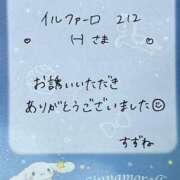 イルファーロ 212
♡ Hさま ♡
お誘いいただき
ありがとうございました☺
すずね
cinnamoroll